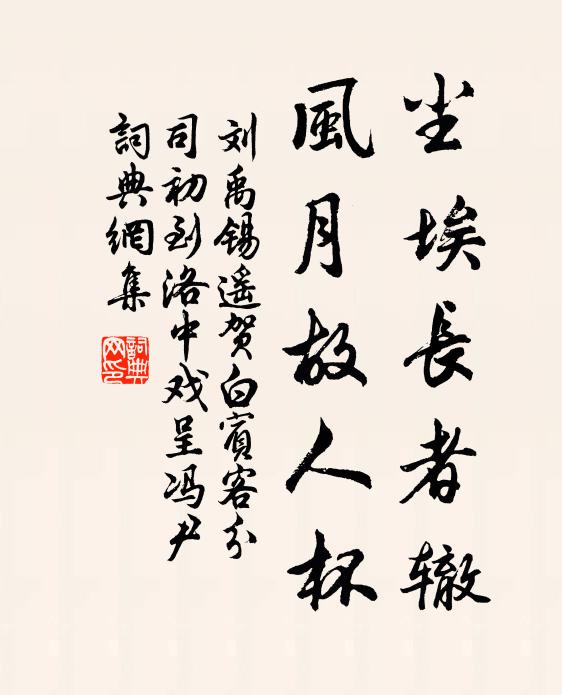 尘埃長者辙
風月故人杯
刘禹錫遥贺白賓客分
司初到洛中戏呈冯尹
詞典網集
詞典
网印